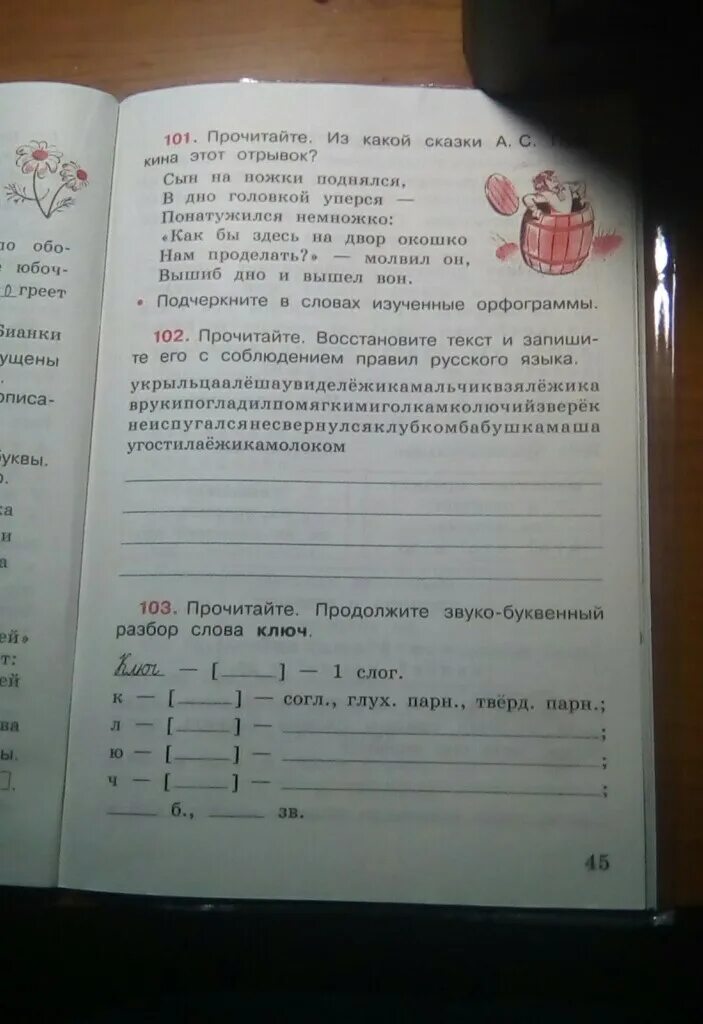 по обо-
е юбоч-
о греет
Бианки
ущены
описа-
буквы.
р.
ка
и
а
ей»
т:
ей
ва
ы.
101. Прочитайте. Из какой сказки А. С.
кина этот отрывок?
Сын на ножки поднялся,
В дно головкой уперся —
Понатужился немножко:
«Как бы здесь на двор окошко
Нам проделать?» — молвил он,
Вышиб дно и вышел вон.
• Подчеркните в словах изученные орфограммы.
102. Прочитайте. Восстановите текст и запиши-
те его с соблюдением правил русского языка.
укрыльцаалёшаувиделёжикамальчиквзялёжика
врукипогладилпомягкимиголкамколючийзверёк
неиспугалсянесвернулсяклубкомбабушкамаша
угостилаёжикамолоком
103. Прочитайте. Продолжите звуко-буквенный
разбор слова ключ.
Ключ — [____] — 1 слог.
к — [____] — согл., глух. парн., твёрд. парн.;
л — [____] — ____;
ю — [____] — ____;
ч — [____] — ____;
____ б., ____ зв.
45